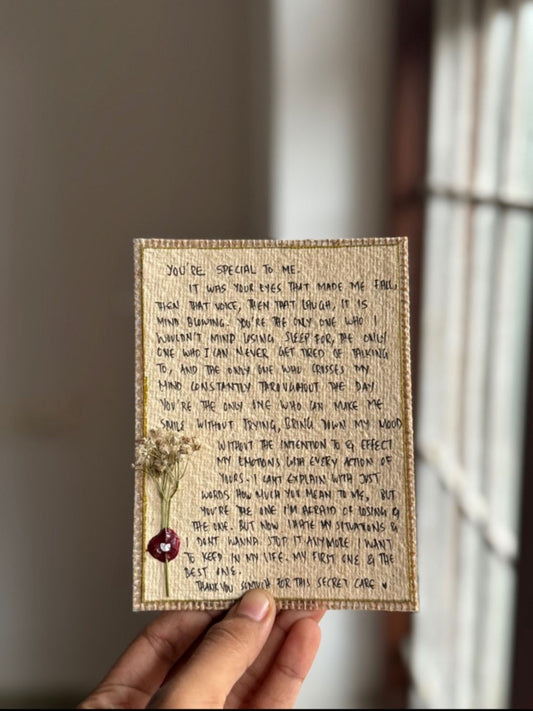 YOU'RE SPECIAL TO ME.
IT WAS YOUR EYES THAT MADE ME FALL,
THEN THAT VOICE, THEN THAT LAUGH, IT IS
MIND BLOWING. YOU'RE THE ONLY ONE WHO I
WOULDN'T MIND LOSING SLEEP FOR, THE ONLY
ONE WHO I CAN NEVER GET TIRED OF TALKING
TO, AND THE ONLY ONE WHO CROSSES MY
MIND CONSTANTLY THROUGHOUT THE DAY
YOU'RE THE ONLY ONE WHO CAN MAKE ME
SMILE WITHOUT TRYING, BRING DOWN MY MOOD
WITHOUT THE INTENTION TO & EFFECT
MY EMOTIONS WITH EVERY ACTION OF
YOURS. I CAN'T EXPLAIN WITH JUST
WORDS HOW MUCH YOU MEAN TO ME, BUT
YOU'RE THE ONE I'M AFRAID OF LOSING &
THE ONE. BUT NOW I HATE MY SITUATIONS &
I DON'T WANNA STOP IT ANYMORE I WANT
TO KEEP IN MY LIFE. MY FIRST ONE & THE
BEST ONE.
THANK YOU SOMUCH FOR THIS SECRET CARE ♥